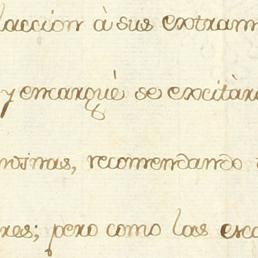 laccion à sus extram
y encarqué se excitàra
ntinas, recomendando
xes; pero como las esca